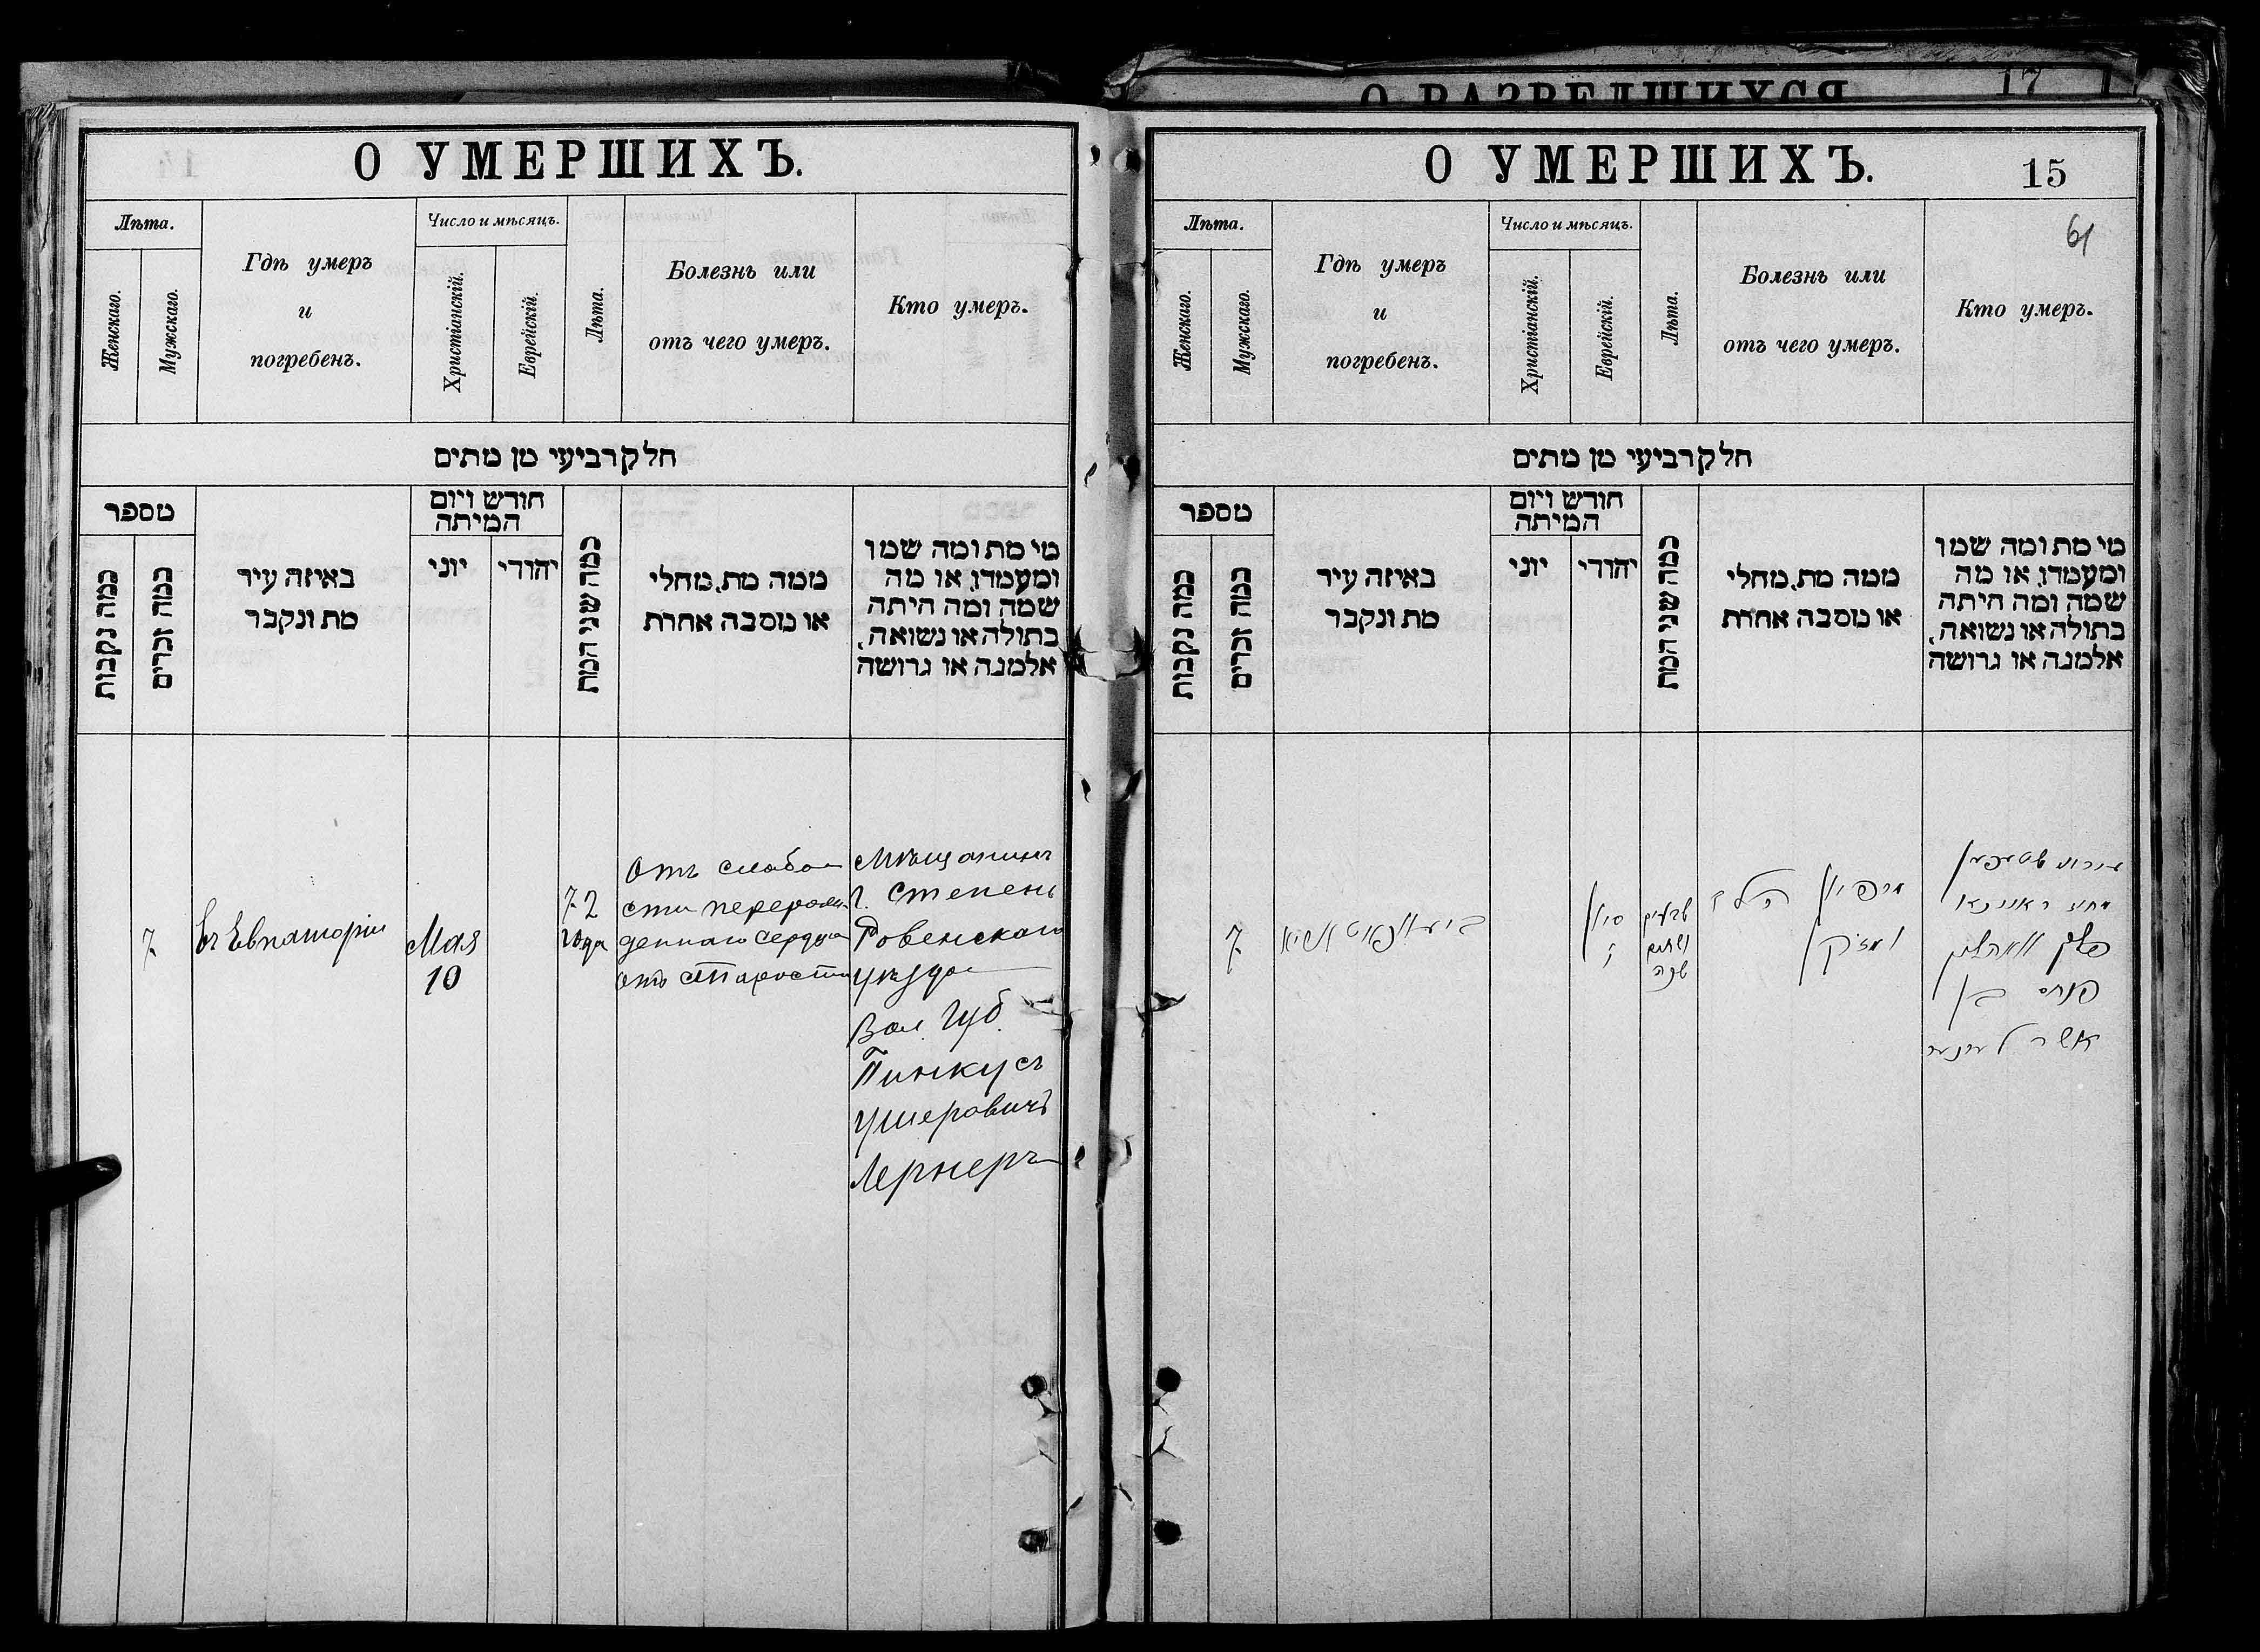 О РАЗВЕДШИХСЯ
17
О УМЕРШИХЪ.
Лѣта.
Женскаго.
Мужскаго.
Гдѣ умеръ
и
погребенъ.
Число и мѣсяцъ.
Христіанскій.
Еврейскій.
Лѣта.
Болезнь или
отъ чего умеръ.
Кто умеръ.
חלק רביעי מן מתים
מספר
כמה נקבות
כמה זכרים
באיזה עיר
מת ונקבר
חודש ויום
המיתה
יוני
יהודי
כמה שני המת
ממה מת, מחלי
או מסבה אחרת
מי מת ומה שמו
ומעמדו, או מה
שמה ומה היתה
בתולה או נשואה,
אלמנה או גרושה
7
Въ Евпаторіи
Мая
10
72
года
Отъ слабо
сти перерож
деннаго сердца
отъ старости
Мѣщанинъ
г. Степень
Ровенскаго
уѣзда
Вол. Губ.
Пинкусъ
Ушеровичъ
Лернеръ
О УМЕРШИХЪ.
15
61
Лѣта.
Женскаго.
Мужскаго.
Гдѣ умеръ
и
погребенъ.
Число и мѣсяцъ.
Христіанскій.
Еврейскій.
Лѣта.
Болезнь или
отъ чего умеръ.
Кто умеръ.
חלק רביעי מן מתים
מספר
כמה נקבות
כמה זכרים
באיזה עיר
מת ונקבר
חודש ויום
המיתה
יוני
יהודי
כמה שני המת
ממה מת, מחלי
או מסבה אחרת
מי מת ומה שמו
ומעמדו, או מה
שמה ומה היתה
בתולה או נשואה,
אלמנה או גרושה
7
סיון
שבעים
ושתים
שנה
מרפיון הלב
ומזוקן
מחוז
פלך וואהלין
פנחס בן
אשר לערנער